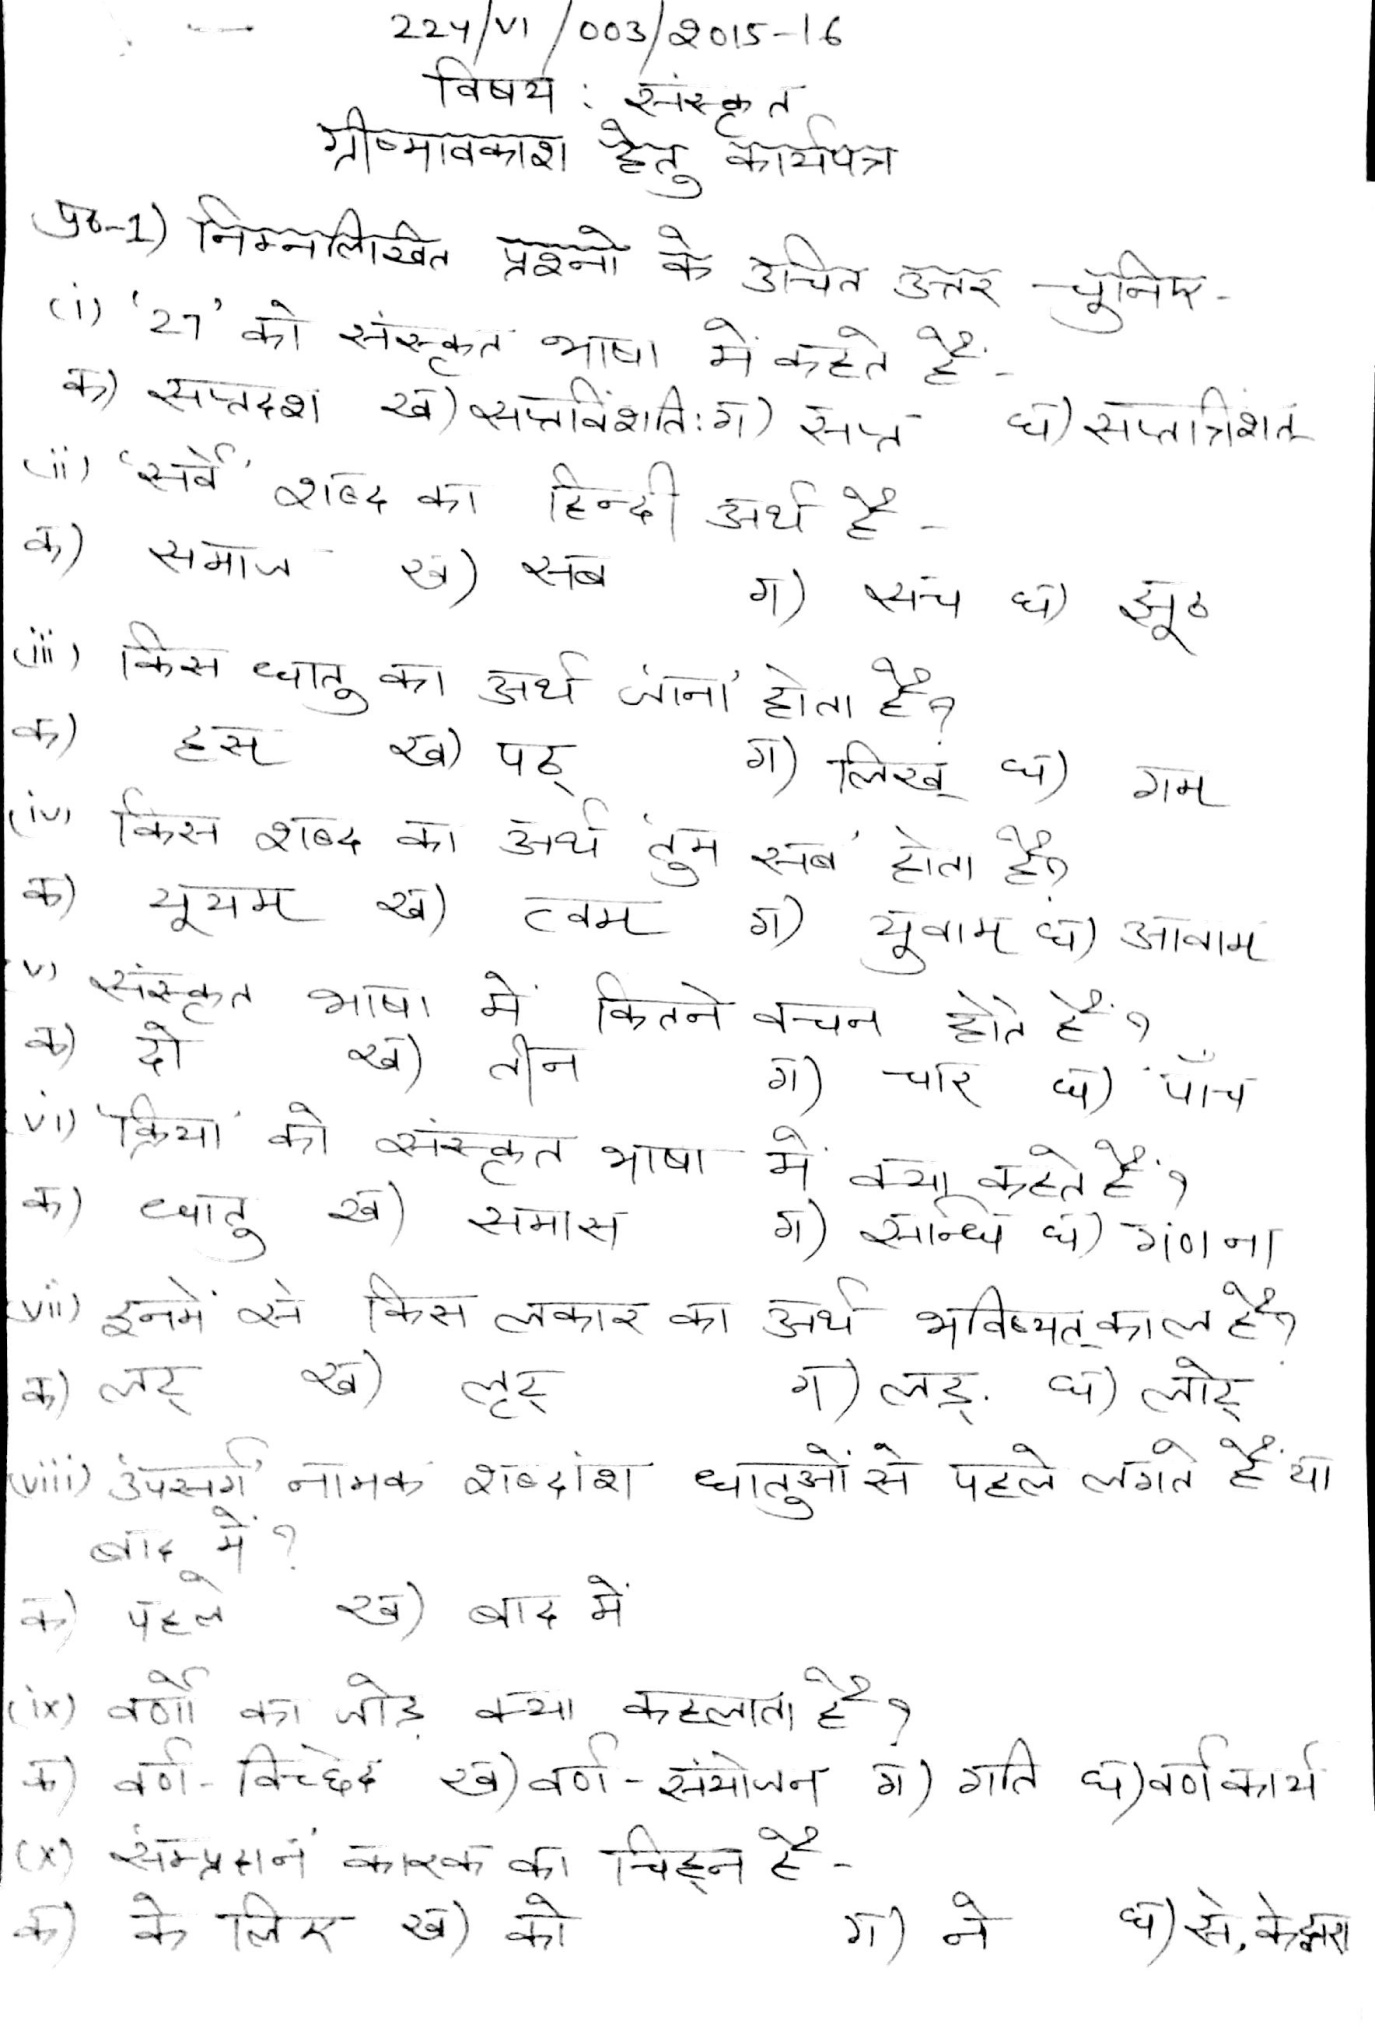 224/VI/003/2015-16
विषय : संस्कृत
ग्रीष्मावकाश हेतु कार्यपत्र
प्र०-1) निम्नलिखित प्रश्नो के उचित उत्तर चुनिए-
(i) '27' को संस्कृत भाषा में कहते हैं-
क) सप्तदश ख) सप्तविंशति: ग) सप्त घ) सप्तत्रिंशत्
(ii) 'सर्वे' शब्द का हिन्दी अर्थ है -
क) समाज ख) सब ग) सच घ) झूठ
(iii) किस धातु का अर्थ 'जाना' होता है?
क) हस् ख) पठ् ग) लिख् घ) गम्
(iv) किस शब्द का अर्थ 'तुम सब' होता है?
क) यूयम् ख) त्वम् ग) युवाम् घ) आवाम्
v) संस्कृत भाषा में कितने वचन होते हैं?
क) दो ख) तीन ग) चार घ) पाँच
vi) 'क्रिया' को संस्कृत भाषा में क्या कहते हैं?
क) धातु ख) समास ग) सन्धि घ) गणना
(vii) इनमें से किस लकार का अर्थ भविष्यत् काल है?
क) लट् ख) लृट् ग) लङ्. घ) लोट्
(viii) 'उपसर्ग' नामक शब्दांश धातुओं से पहले लगते हैं या
बाद में?
क) पहले ख) बाद में
(ix) वर्णों का जोड़ क्या कहलाता है?
क) वर्ण-विच्छेद ख) वर्ण-संयोजन ग) गति घ) वर्णकार्य
(x) 'सम्प्रदान' कारक का चिह्न है-
क) के लिए ख) को ग) ने घ) से, के द्वारा